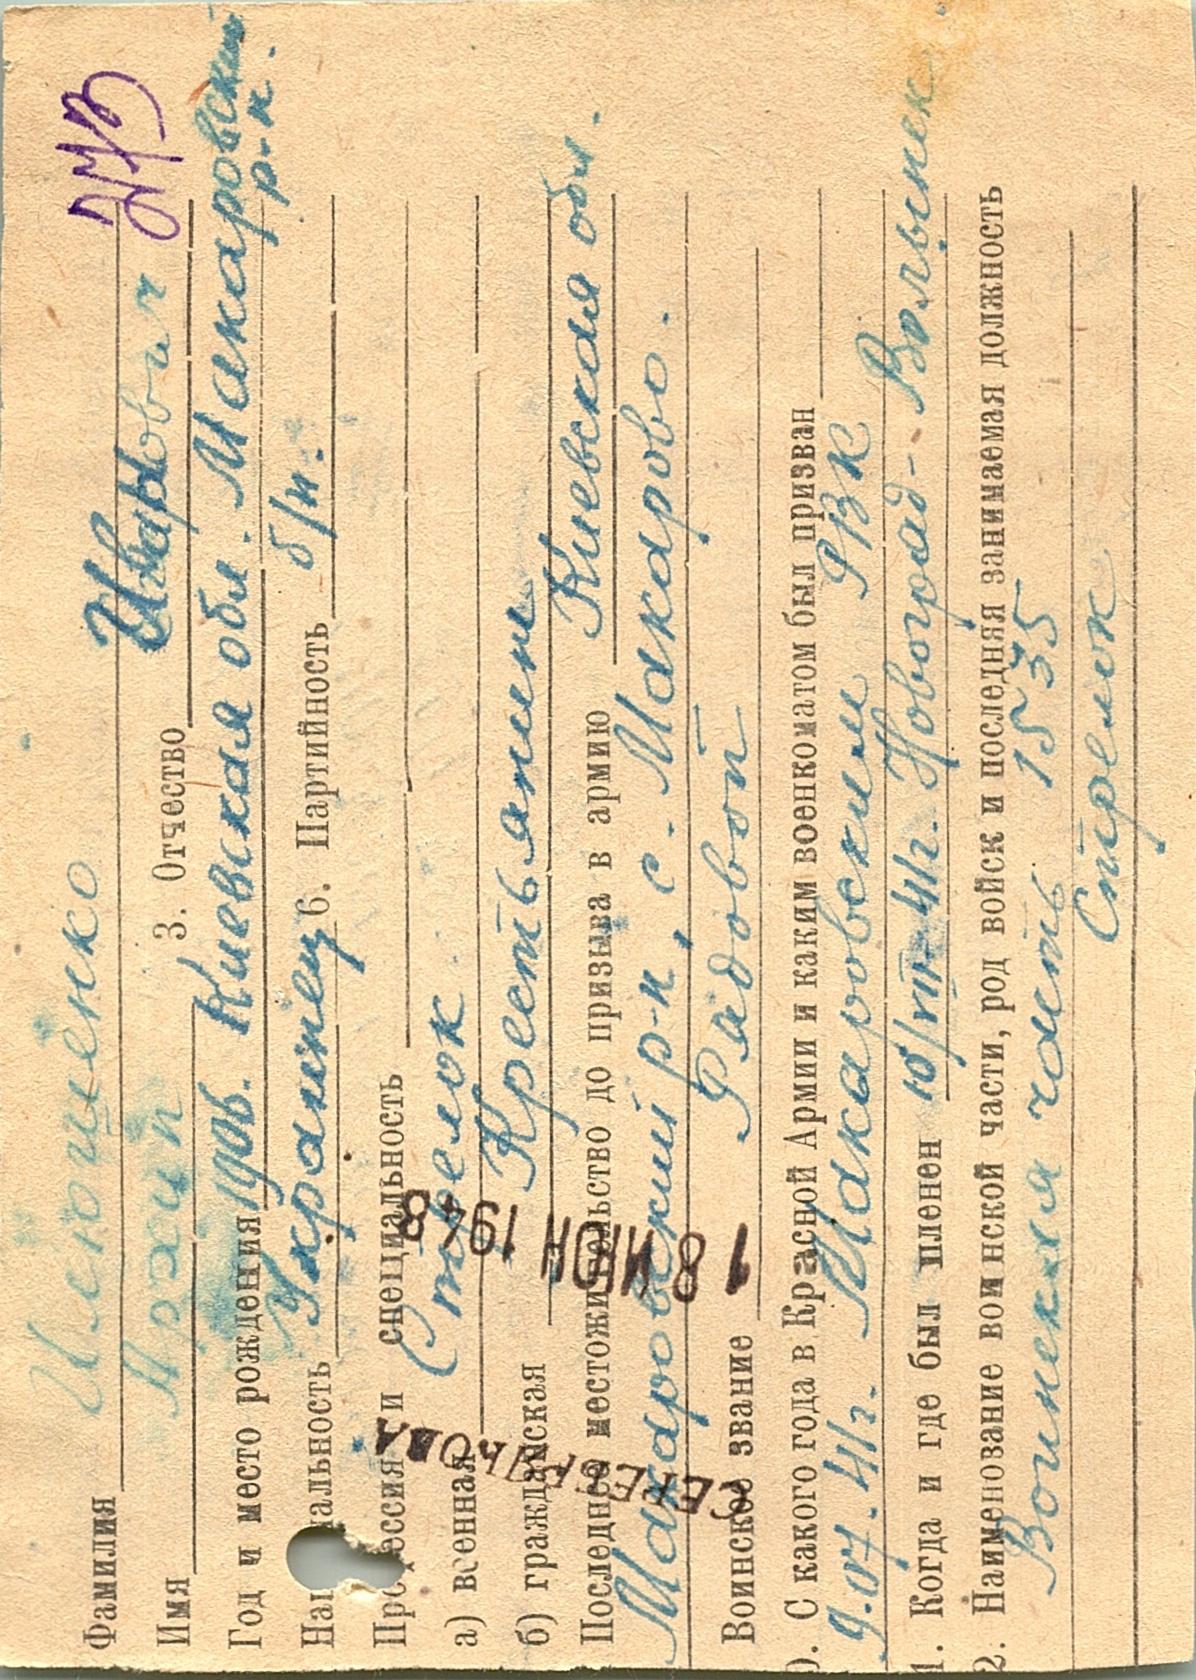 Фамилия Искощенко
Имя Архип 3. Отчество
Год и место рождения 1906. Киевская обл. Макаровский
р-н.
Национальность Украинец 6. Партийность б/п.
Профессия и специальность
а) военная Стрелок
б) гражданская Крестьянин
Последнее местожительство до призыва в армию Киевская обл.
Макаровский р-н, с. Макарово.
Воинское звание Рядовой
0. С какого года в Красной Армии и каким военкоматом был призван
9.07.41г. Макаровским РВК
1. Когда и где был пленен 10/VIII-41г. Новоград-Волынск
2. Наименование воинской части, род войск и последняя занимаемая должность
Воинская часть 1535
Стрелок
18 ИЮН 1948
СЕРЕБРЯКОВА